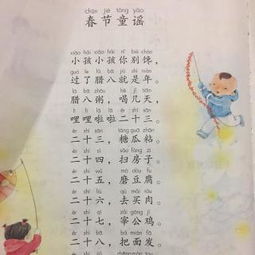 chūn jié tóng yáo
春节童谣
xiǎo hái xiǎo hái nǐ bié chán
小孩小孩你别馋，
guò le là bā jiù shì nián
过了腊八就是年。
là bā zhōu hē jǐ tiān
腊八粥，喝几天，
lī lī lā lā èr shí sān
哩哩啦啦二十三。
èr shí sān táng guā zhān
二十三，糖瓜粘。
èr shí sì sǎo fáng zi
二十四，扫房子。
èr shí wǔ mó dòu fu
二十五，磨豆腐。
èr shí liù qù mǎi ròu
二十六，去买肉。
èr shí qī zǎi gōng jī
二十七，宰公鸡。
èr shí bā bǎ miàn fā
二十八，把面发。